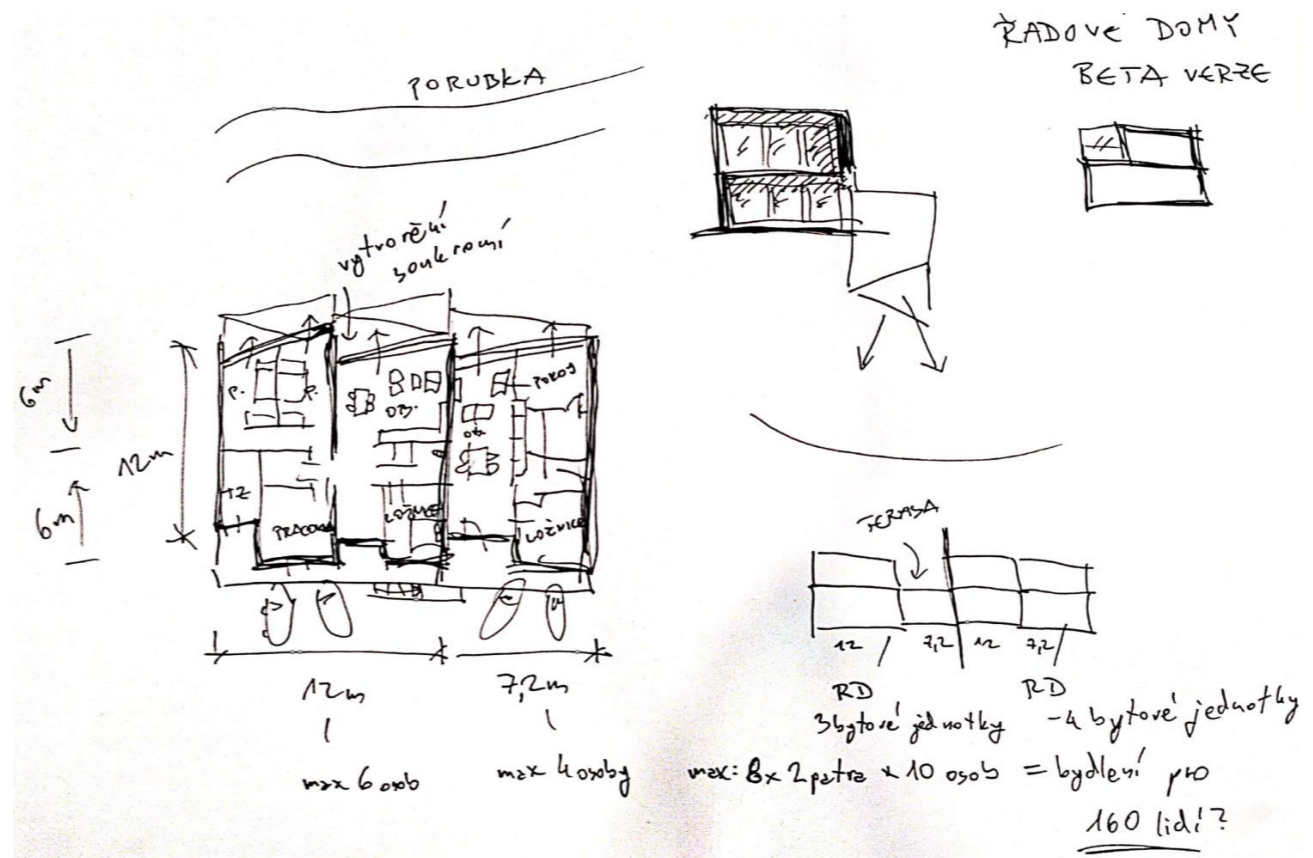 ŘADOVÉ DOMY
BETA VERZE
PORUBKA
vytvoření
soukromí
6m
6m
12m
P.
P.
OBÝ.
OB.
POKOJ
TZ
PRACOVNA
LOŽNICE
LOŽNICE
12m
7,2m
max 6 osob
max 4 osoby
TERASA
12
7,2
12
7,2
RD
3 bytové jednotky
RD
- 4 bytové jednotky
max: 8x 2 patra x 10 osob = bydlení pro
160 lidí?